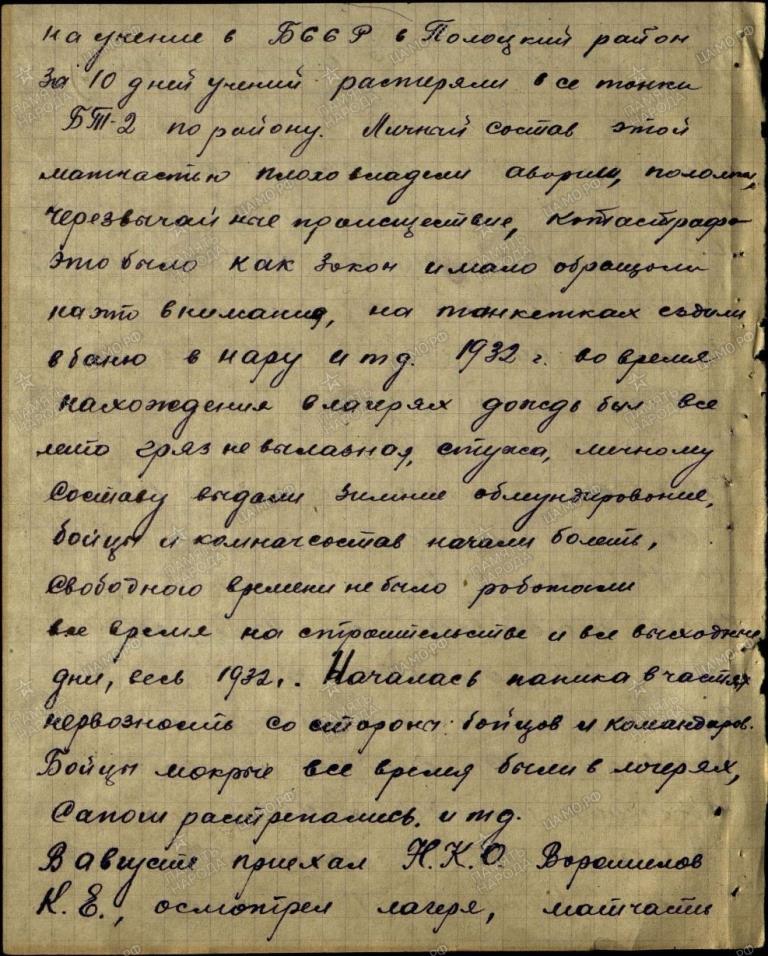 на учение в БССР в Полоцкий район
за 10 дней учений растеряли все танки
БТ-2 по району. Личный состав этой
матчастью плохо владели аварии, поломки,
черезвычайные происшествие, катастрафа
это было как закон и мало обращали
на это внимания, на танкетках ездили
в баню в нару и т д. 1932 г. во время
нахождения в лагерях дождь был все
лето гряз не вылазная, стужа, личному
составу выдали зимние обмундирование,
бойцы и комначсостав начали болеть,
свободного времени не было работали
все время на строительстве и все выходные
дни, весь 1932 г. Началась паника в частях
нервозность со стороны бойцов и командиров.
Бойцы мокрые все время были в лагерях,
Сапоги растрепались. и т д.
В августе приехал Н.К.О. Ворошилов
К. Е., осмотрел лагеря, матчасть